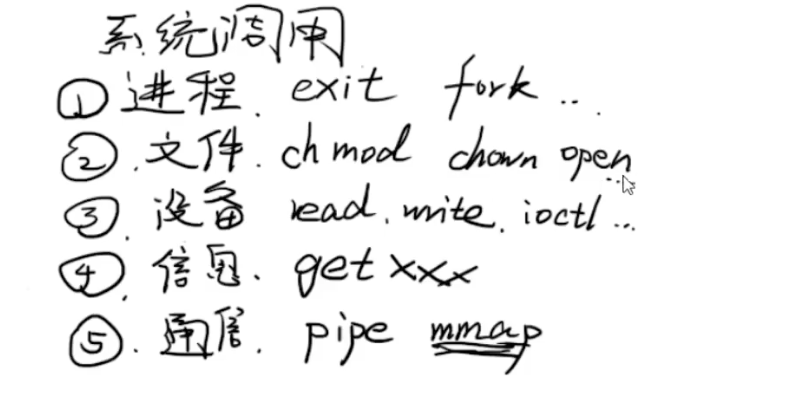 系统调用
① 进程. exit fork ...
②. 文件. chmod chown open ...
③. 设备 read. write. ioctl ...
④. 信息. getxxx
⑤. 通信. pipe mmap